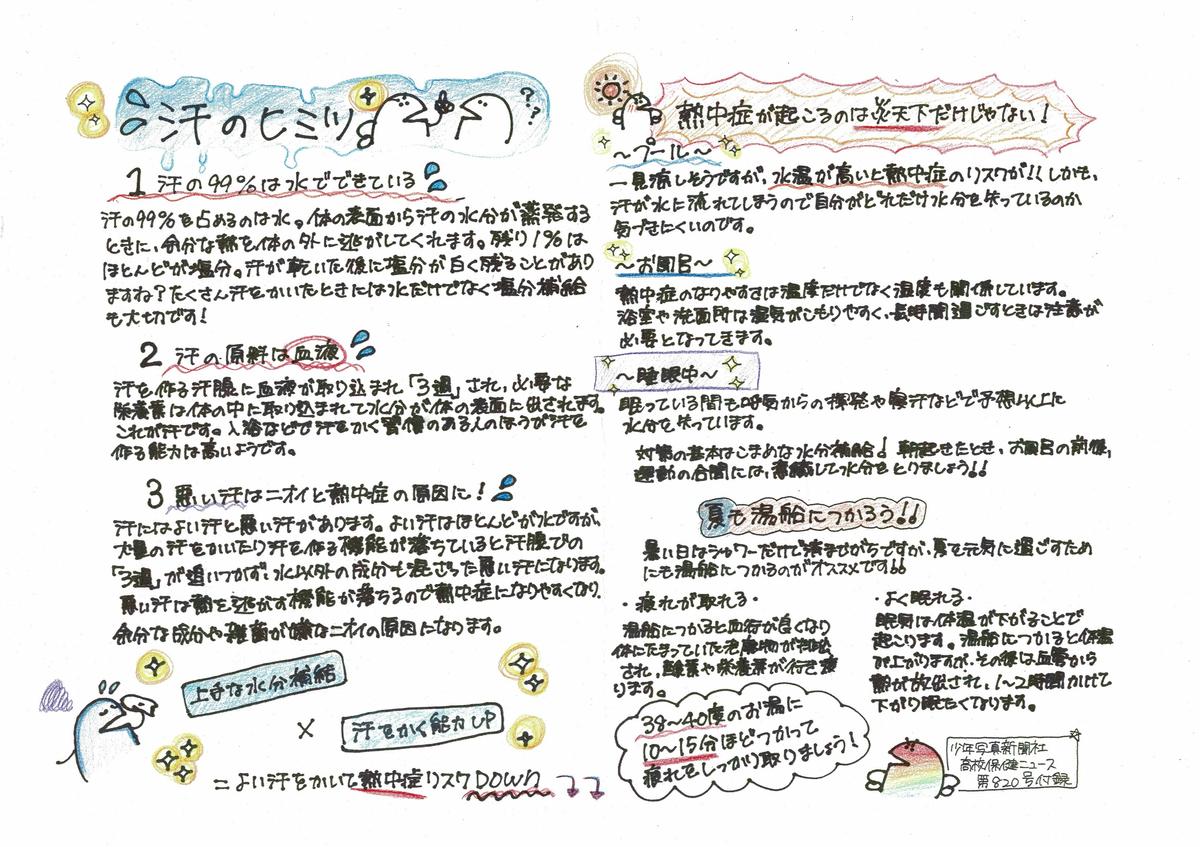 汗のヒミツ
??
1 汗の99%は水でできている
汗の99%を占めるのは水。体の表面から汗の水分が蒸発する
ときに、余分な熱を体の外に逃がしてくれます。残り1%は
ほとんどが塩分。汗が乾いた後に塩分が白く残ることがあり
ますね?たくさん汗をかいたときには水だけでなく塩分補給
も大切です!
2 汗の原料は血液
汗を作る汗腺に血液が取り込まれ「ろ過」され、必要な
栄養素は体の中に取り込まれて水分が体の表面に出されます。
これが汗です。入浴などで汗をかく習慣のある人のほうが汗を
作る能力は高いようです。
3 悪い汗はニオイと熱中症の原因に!
汗にはよい汗と悪い汗があります。よい汗はほとんどが水ですが、
大量の汗をかいたり汗を作る機能が落ちていると汗腺での
「ろ過」が追いつかず、水以外の成分も混ざった悪い汗になります。
悪い汗は熱を逃がす機能が落ちるので熱中症になりやすくなり、
余分な成分や雑菌が嫌なニオイの原因になります。
上手な水分補給
×
汗をかく能力UP
=よい汗をかいて熱中症リスクDOWN
熱中症が起こるのは炎天下だけじゃない!
~プール~
一見涼しそうですが、水温が高いと熱中症のリスクが!!しかも、
汗が水に流れてしまうので自分がどれだけ水分を失っているのか
気づきにくいのです。
~お風呂~
熱中症のなりやすさは温度だけでなく湿度も関係しています。
浴室や洗面所は湿気がこもりやすく、長時間過ごすときは注意が
必要となってきます。
~睡眠中~
眠っている間も呼気からの揮発や寝汗などで予想以上に
水分を失っています。
対策の基本はこまめな水分補給!朝起きたとき、お風呂の前後、
運動の合間には、意識して水分をとりましょう!!
夏も湯船につかろう!!
暑い日はシャワーだけで済ませがちですが、夏を元気に過ごすため
にも湯船につかるのがオススメです!!
・疲れが取れる・
湯船につかると血行が良くなり
体にたまっていた老廃物が排出
され、酸素や栄養素が行き渡
ります。
・よく眠れる・
眠気は体温が下がることで
起こります。湯船につかると体温
が上がりますが、その後は血管から
熱が放出され、1~2時間かけて
下がり眠たくなります。
38~40度のお湯に
10~15分ほどつかって
疲れをしっかり取りましょう!
少年写真新聞社
高校保健ニュース
第820号付録